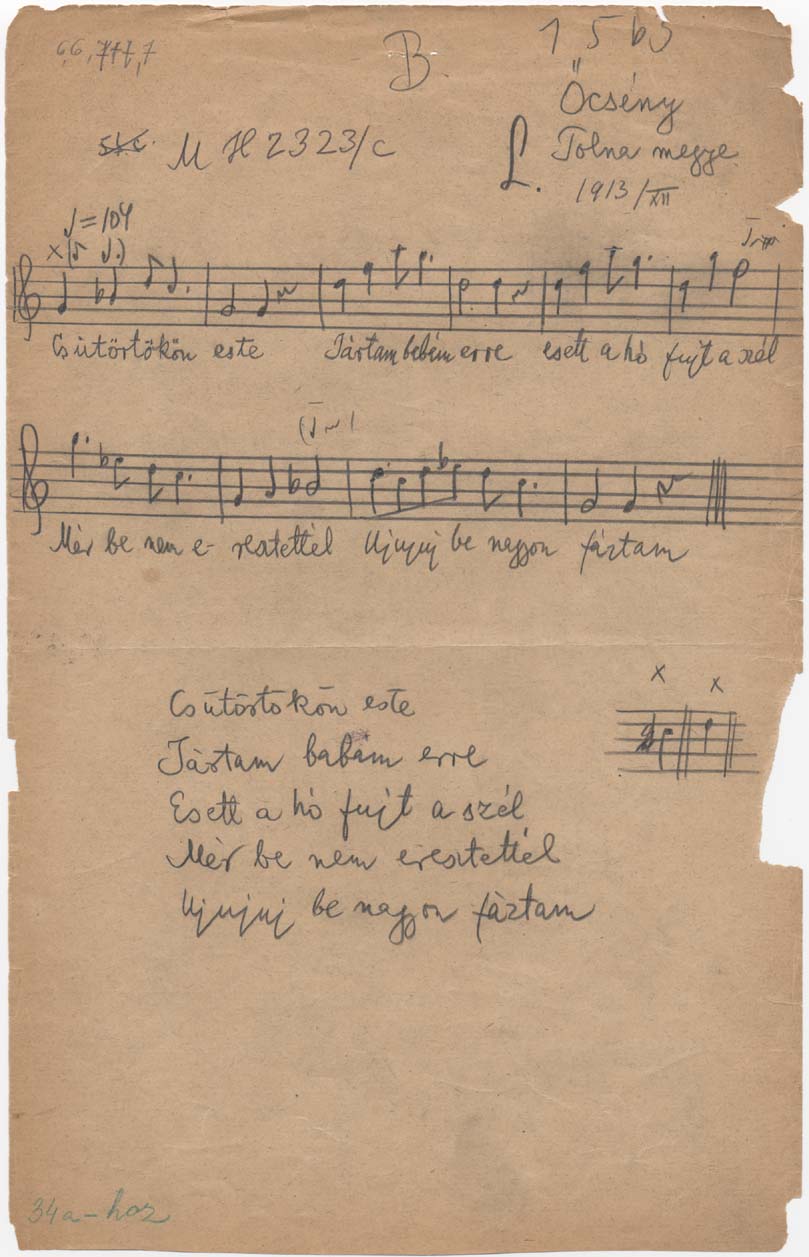 66,777,7
B.
1563
Őcsény
MH 2323/c
L. Tolna megye
1913/XII
♩=104
Csütörtökön este Jártam bebém erre esett a hó fujt a szél
Mér be nem e- resztettél Ujujuj be nagyon fáztam
Csütörtökön este
Jártam babám erre
Esett a hó fujt a szél
Mér be nem eresztettél
Ujujuj be nagyon fáztam
x x
34a-hoz